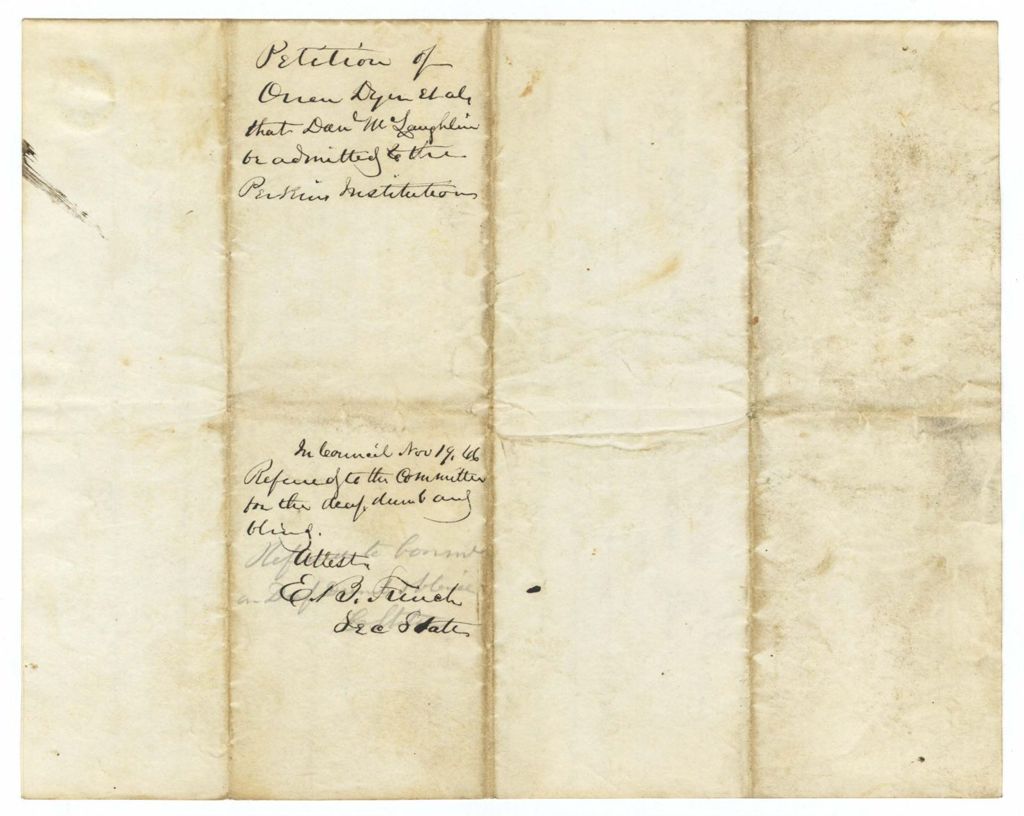 Petition of
Orren Dyer et als
that Danl McLaughlin
be admitted to the
Perkins Institution
In Council Nov 19. 46
Referred to the Committee
for the deaf, dumb and
blind.
Attest.
E. B. French
Sec State